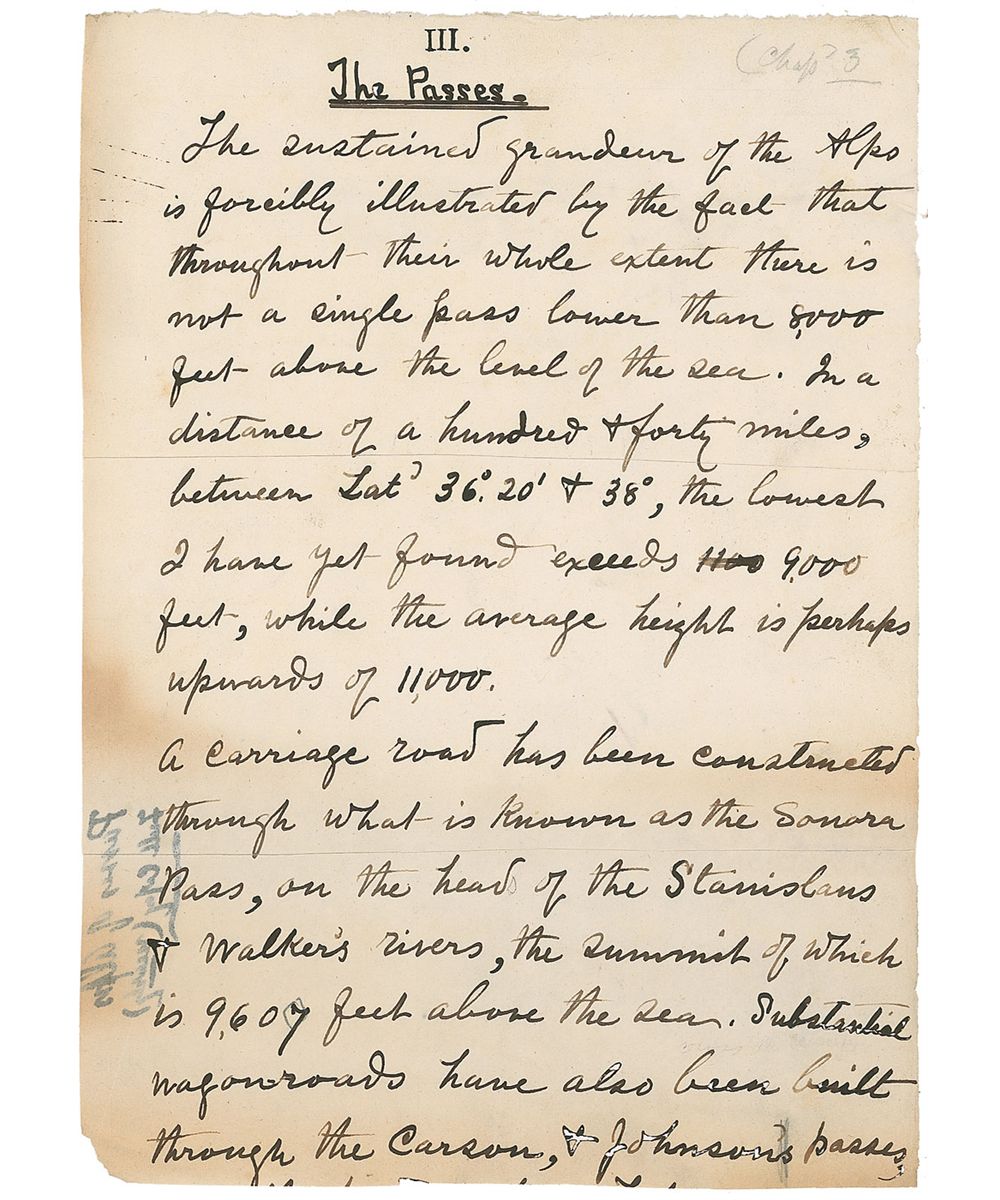 III.
(Chap. 3
The Passes.
The sustained grandeur of the Alps
is forcibly illustrated by the fact that
throughout their whole extent there is
not a single pass lower than 8,000
feet above the level of the sea. In a
distance of a hundred & forty miles,
between Lat. 36°. 20' & 38°, the lowest
I have yet found exceeds 1100 9,000
feet, while the average height is perhaps
upwards of 11,000.
A carriage road has been constructed
through what is known as the Sonora
Pass, on the head of the Stanislaus
& Walker's rivers, the summit of which
is 9,607 feet above the sea. Substantial
wagon-roads have also been built
through the Carson, & Johnson's passes,